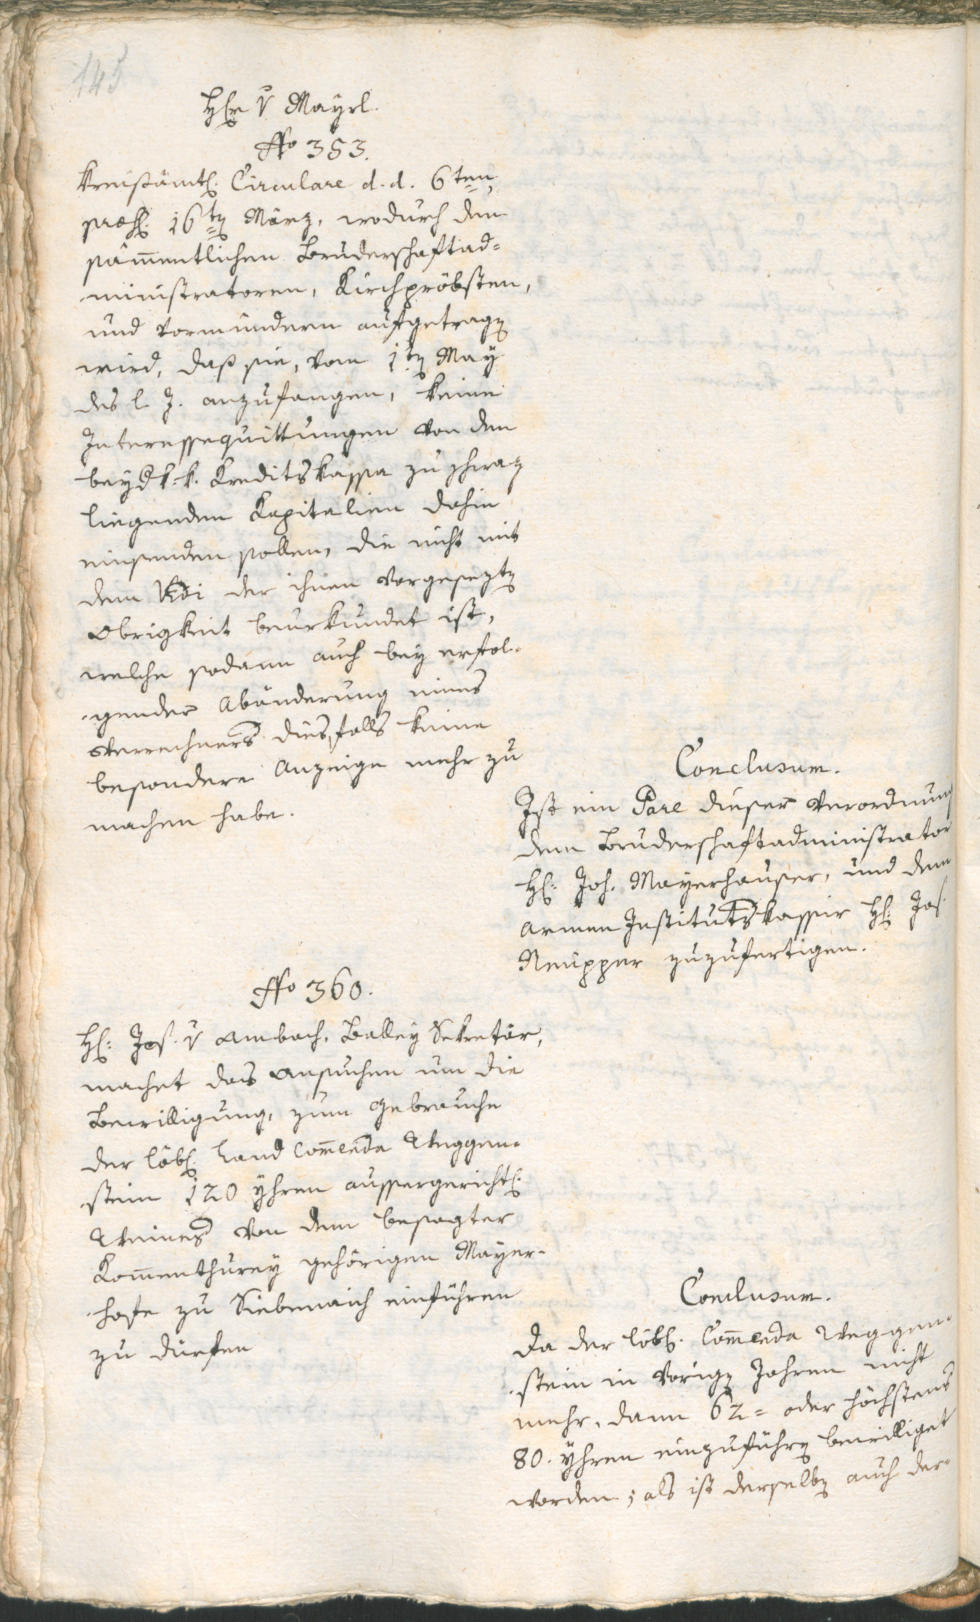 145
H&. v Mayrl.
No 353.
Kreisämtl. Circulare d. d. 6ten,
præs. 16tn März, wodurch den
sam̅entlichen Bruderschaftad=
ministratoren, Kirchpröbsten,
und Vormündern aufgetragn
wird, daß sie, vom 1tn May
des l. J. anzufangen, keine
Interessequittungen von den
bey d. k. k. Kreditskassa zu Schwaz
liegenden Kapitalien dahin
einsenden sollen, die nicht mit
dem Vidi der ihnen vorgeseztn
Obrigkeit beurkundet ist,
welche sodann auch bey erfol=
gender Abänderung eines
Verrechners diesfalls keine
besondere Anzeige mehr zu
machen habe.
Conclusum.
Ist ein Pare dieser Verordnung
dem Bruderschaftadministrator
H. Joh. Mayerhauser, und dem
Armen Institutskassir H. Jos.
Neupper zuzufertigen.
No 360.
H. Jos. v Ambach, Balley Sekretär,
machet das Ansuchen um die
Bewilligung, zum Gebrauche
der löbl. Land Com̅enda Weggen=
stein 120 Yhren aussergerichtl.
Weines von dem besagter
Kom̅enthurey gehörigen Mayer=
hofe zu Siebenaich einführen
zu dürfen
Conclusum.
Da der löbl. Com̅enda Weggen=
stein in vorign Jahren nicht
mehr, dann 62= oder höchstens
80. Yhren einzuführn bewilliget
worden; als ist derselbn auch der=